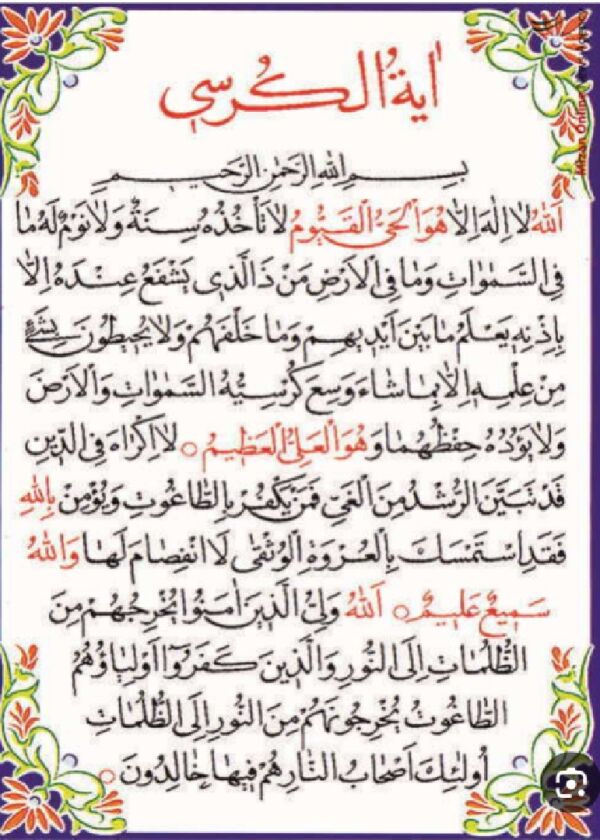 اٰیةُ الکُرسی
بِسمِ اللهِ الرَّحمٰنِ الرَّحیمِ
اَللهُ لا اِلٰهَ اِلّا هُوَ الْحَیُّ الْقَیُّومُ لا تَأخُذُهُ سِنَةٌ وَ لا نَوْمٌ لَهُ ما
فِی السَّمٰواتِ وَ ما فِی الْاَرْضِ مَنْ ذَا الَّذی یَشْفَعُ عِنْدَهُ اِلّا
بِاِذْنِهِ یَعْلَمُ ما بَیْنَ اَیْدیهِمْ وَ ما خَلْفَهُمْ وَ لا یُحیطُونَ بِشَیْءٍ
مِنْ عِلْمِهِ اِلّا بِما شاءَ وَسِعَ کُرْسِیُّهُ السَّمٰواتِ وَ الْاَرْضَ
وَ لا یَؤُدُهُ حِفْظُهُما وَ هُوَ الْعَلِیُّ الْعَظیمُ لا اِکْراهَ فِی الدّینِ
قَدْ تَبَیَّنَ الرُّشْدُ مِنَ الْغَیِّ فَمَنْ یَکْفُرْ بِالطّاغُوتِ وَ یُؤْمِنْ بِاللهِ
فَقَدِ اسْتَمْسَکَ بِالْعُرْوَةِ الْوُثْقیٰ لَا انْفِصامَ لَها وَ اللهُ
سَمیعٌ عَلیمٌ اَللهُ وَلِیُّ الَّذینَ اٰمَنُوا یُخْرِجُهُمْ مِنَ
الظُّلُماتِ اِلَی النُّورِ وَ الَّذینَ کَفَرُوا اَوْلِیاؤُهُمُ
الطّاغُوتُ یُخْرِجُونَهُمْ مِنَ النُّورِ اِلَی الظُّلُماتِ
اُولٰئِکَ اَصْحابُ النّارِ هُمْ فیها خالِدُونَ
Mizan Online